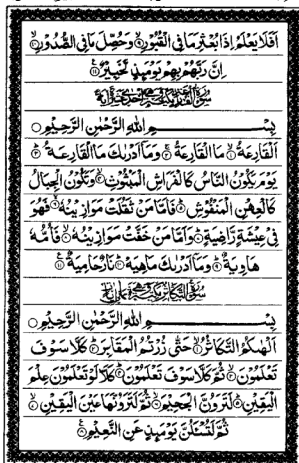 اَفَلَا يَعْلَمُ اِذَا بُعْثِرَ مَا فِى الْقُبُوْرِ ۙ۝۹ وَحُصِّلَ مَا فِى الصُّدُوْرِ ۙ۝۱۰
اِنَّ رَبَّهُمْ بِهِمْ يَوْمَئِذٍ لَّخَبِيْرٌ ۝۱۱
بِسْمِ اللّٰهِ الرَّحْمٰنِ الرَّحِيْمِ ۝
اَلْقَارِعَةُ ۙ۝۱ مَا الْقَارِعَةُ ۚ۝۲ وَمَاۤ اَدْرٰىكَ مَا الْقَارِعَةُ ؕ۝۳
يَوْمَ يَكُوْنُ النَّاسُ كَالْفَرَاشِ الْمَبْثُوْثِ ۙ۝۴ وَتَكُوْنُ الْجِبَالُ
كَالْعِهْنِ الْمَنْفُوْشِ ؕ۝۵ فَاَمَّا مَنْ ثَقُلَتْ مَوَازِيْنُهٗ ۙ۝۶ فَهُوَ
فِىْ عِيْشَةٍ رَّاضِيَةٍ ؕ۝۷ وَاَمَّا مَنْ خَفَّتْ مَوَازِيْنُهٗ ۙ۝۸ فَاُمُّهٗ
هَاوِيَةٌ ؕ۝۹ وَمَاۤ اَدْرٰىكَ مَاهِيَهْ ؕ۝۱۰ نَارٌ حَامِيَةٌ ۝۱۱
بِسْمِ اللّٰهِ الرَّحْمٰنِ الرَّحِيْمِ ۝
اَلْهٰىكُمُ التَّكَاثُرُ ۙ۝۱ حَتّٰى زُرْتُمُ الْمَقَابِرَ ؕ۝۲ كَلَّا سَوْفَ
تَعْلَمُوْنَ ۙ۝۳ ثُمَّ كَلَّا سَوْفَ تَعْلَمُوْنَ ؕ۝۴ كَلَّا لَوْ تَعْلَمُوْنَ عِلْمَ
الْيَقِيْنِ ؕ۝۵ لَتَرَوُنَّ الْجَحِيْمَ ۙ۝۶ ثُمَّ لَتَرَوُنَّهَا عَيْنَ الْيَقِيْنِ ۙ۝۷
ثُمَّ لَتُسْئَلُنَّ يَوْمَئِذٍ عَنِ النَّعِيْمِ ۝۸